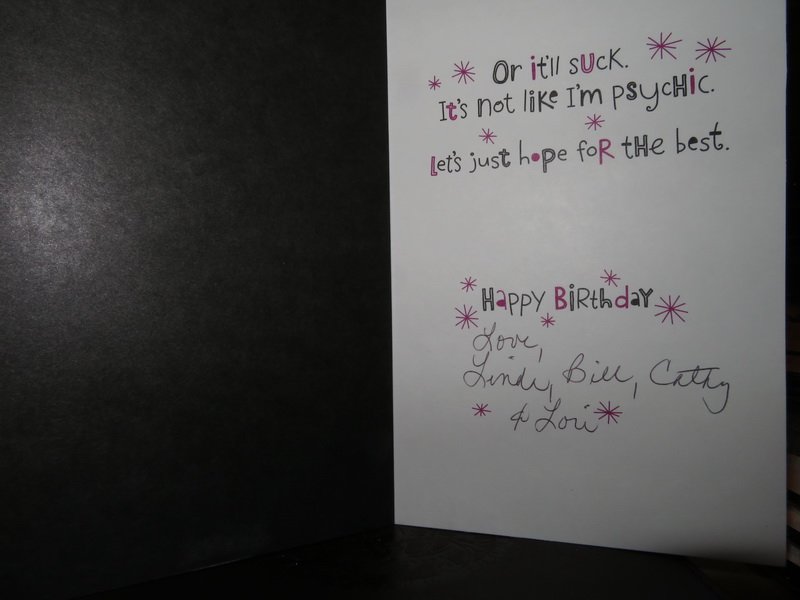 Or it'll suck.
It's not like I'm psychic.
Let's just hope for the best.
Happy Birthday
Love,
Linda, Bill, Cathy
& Lori